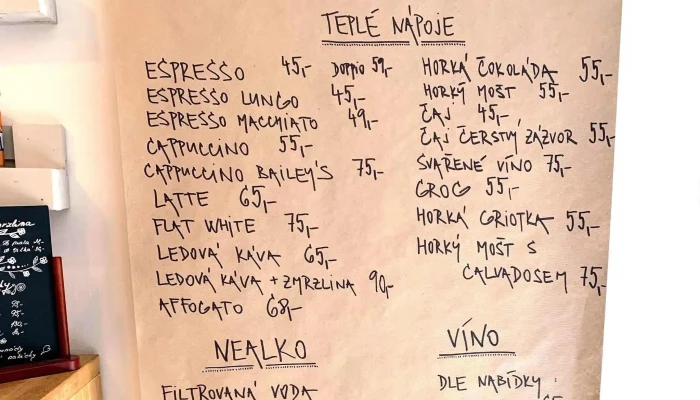 TEPLÉ NÁPOJE
ESPRESSO 45,- DOPPIO 59,-
ESPRESSO LUNGO 45,-
ESPRESSO MACCHIATO 49,-
CAPPUCCINO 55,-
CAPPUCCINO BAILEY'S 75,-
LATTE 65,-
FLAT WHITE 75,-
LEDOVÁ KÁVA 65,-
LEDOVÁ KÁVA + ZMRZLINA 90,-
AFFOGATO 68,-
HORKÁ ČOKOLÁDA 55,-
HORKÝ MOŠT 55,-
ČAJ 45,-
ČAJ ČERSTVÝ ZÁZVOR 55,-
SVAŘENÉ VÍNO 75,-
GROG 55,-
HORKÁ GRIOTKA 55,-
HORKÝ MOŠT S
CALVADOSEM 75,-
NEALKO
FILTROVANÁ VODA
VÍNO
DLE NABÍDKY: